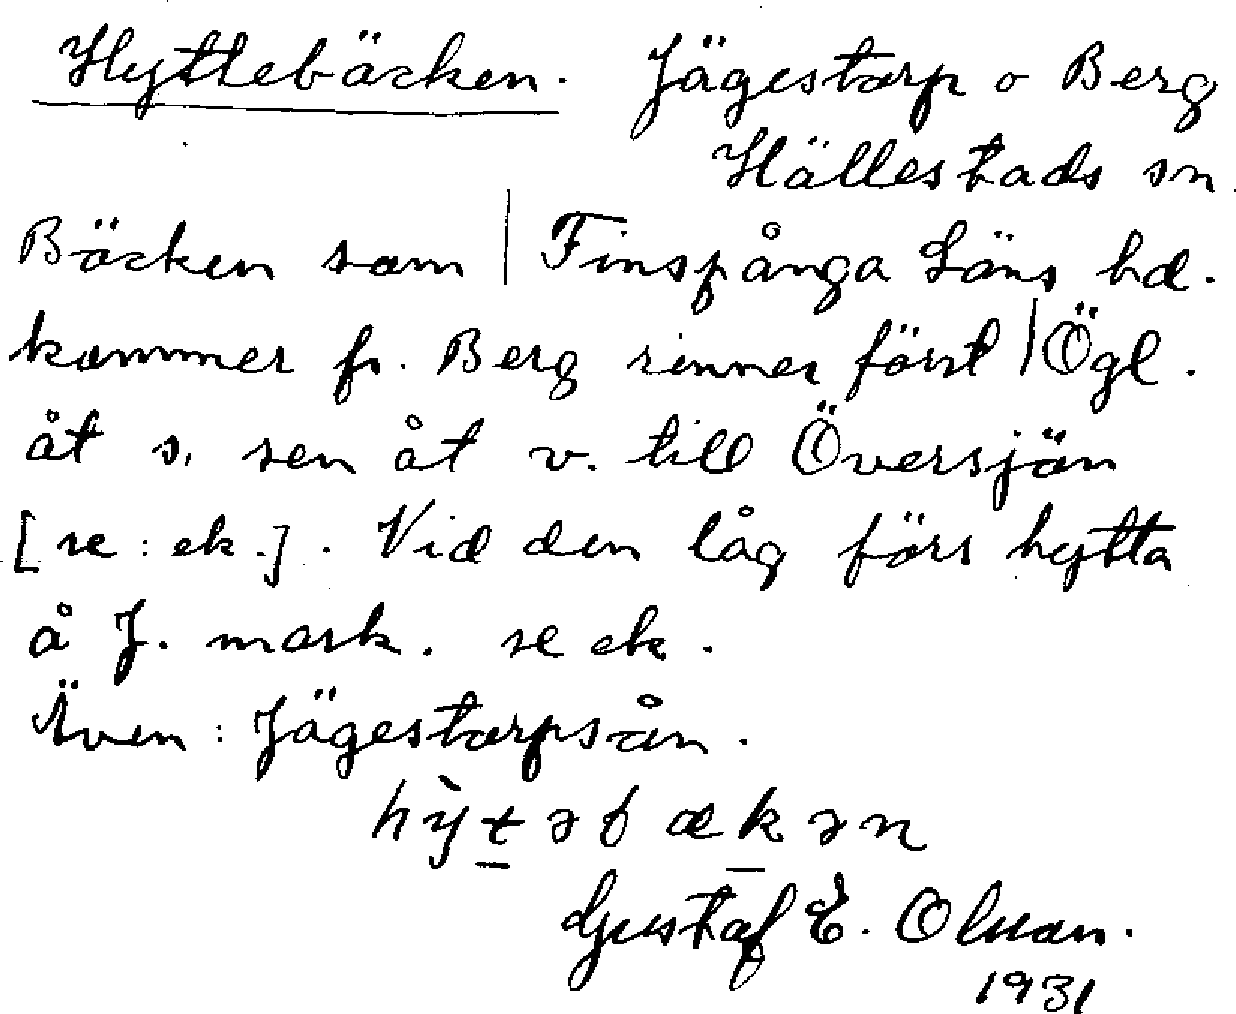 Hyttebäcken. Jägestorp o Berg
Hällestads sn
Bäcken som | Finspånga Läns hd.
kommer fr. Berg rinner först | Ögl.
åt s. sen åt v. till Översjön
[se: ek.]. Vid den låg förs hytta
å J. mark. se ek.
Även: Jägestorpsån.
hỳtəbækən
Gustaf E. Olsson.
1931